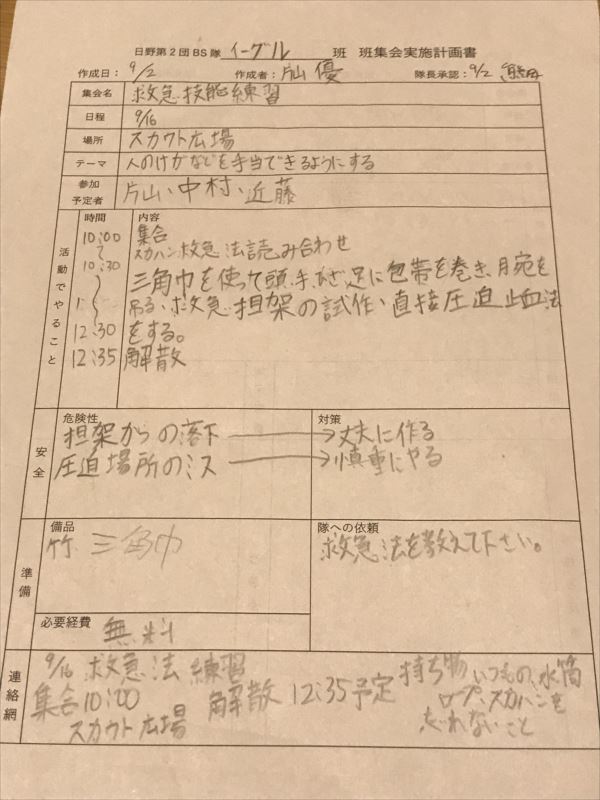 日野第2団BS隊 イーグル 班 班集会実施計画書
作成日：9/2 作成者：片山 優 隊長承認：9/2
集会名 救急技能練習
日程 9/16
場所 スカウト広場
テーマ 人のけがなどを手当できるようにする
参加予定者 片山、中村、近藤
活動でやること
時間 内容
10:00 集合
〜 スカハン救急法読み合わせ
10:30
三角巾を使って頭、手、ひざ、足に包帯を巻き、腕を
吊る、救急、担架の試作、直接圧迫止血法
12:30 をする。
12:35 解散
安全
危険性 対策
担架からの落下 → 丈夫に作る
圧迫場所のミス → 慎重にやる
準備
備品 隊への依頼
竹 三角巾 救急法を教えて下さい。
必要経費 無料
連絡網
9/16 救急法 練習 持ち物 いつもの、水筒
集合10:00 解散 12:35予定 ロープ、スカハンを
スカウト広場 忘れないこと